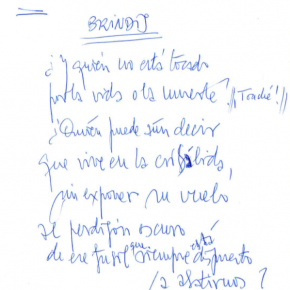 BRINDIS
¿Y quién no está tocado
por la vida o la muerte? ¡¡Touché!!
¿Quién puede aún decir
que vive en la crisálida,
sin exponer su vuelo
al perdigón oscuro
de ese fusil que siempre está dispuesto
a abatirnos?